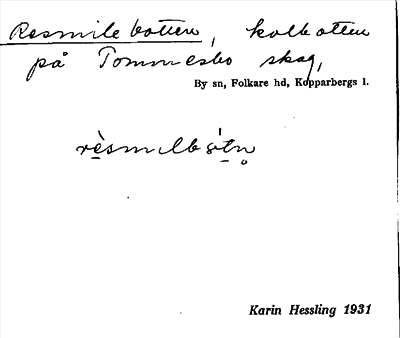 Resmilebotten, kolbotten
på Tommesbo skog,
By sn, Folkare hd, Kopparbergs l.
rèsmɩlbótn̥
Karin Hessling 1931